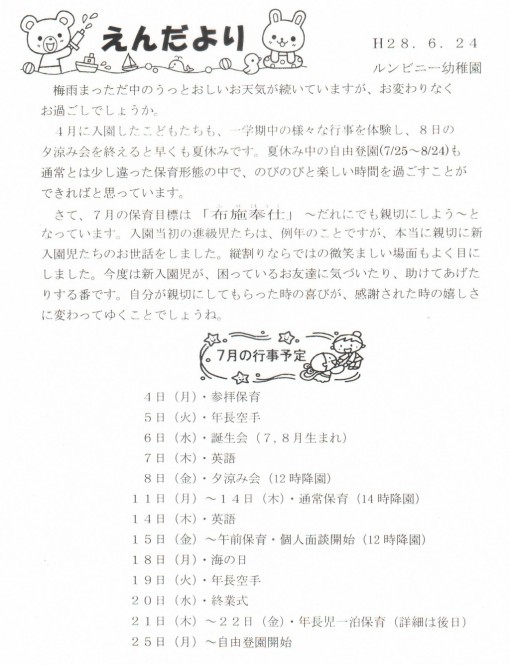 えんだより
H28.6.24
ルンビニー幼稚園
梅雨まっただ中のうっとおしいお天気が続いていますが、お変わりなく
お過ごしでしょうか。
4月に入園したこどもたちも、一学期中の様々な行事を体験し、8日の
夕涼み会を終えると早くも夏休みです。夏休み中の自由登園(7/25～8/24)も
通常とは少し違った保育形態の中で、のびのびと楽しい時間を過ごすことが
できればと思っています。
さて、7月の保育目標は「布施奉仕」～だれにでも親切にしよう～と
なっています。入園当初の進級児たちは、例年のことですが、本当に親切に新
入園児たちのお世話をしました。縦割りならではの微笑ましい場面もよく目に
しました。今度は新入園児が、困っているお友達に気づいたり、助けてあげた
りする番です。自分が親切にしてもらった時の喜びが、感謝された時の嬉しさ
に変わってゆくことでしょうね。
7月の行事予定
4日（月）・参拝保育
5日（火）・年長空手
6日（水）・誕生会（7,8月生まれ）
7日（木）・英語
8日（金）・夕涼み会（12時降園）
11日（月）～14日（木）・通常保育（14時降園）
14日（木）・英語
15日（金）～午前保育・個人面談開始（12時降園）
18日（月）・海の日
19日（火）・年長空手
20日（水）・終業式
21日（木）～22日（金）・年長児一泊保育（詳細は後日）
25日（月）～自由登園開始